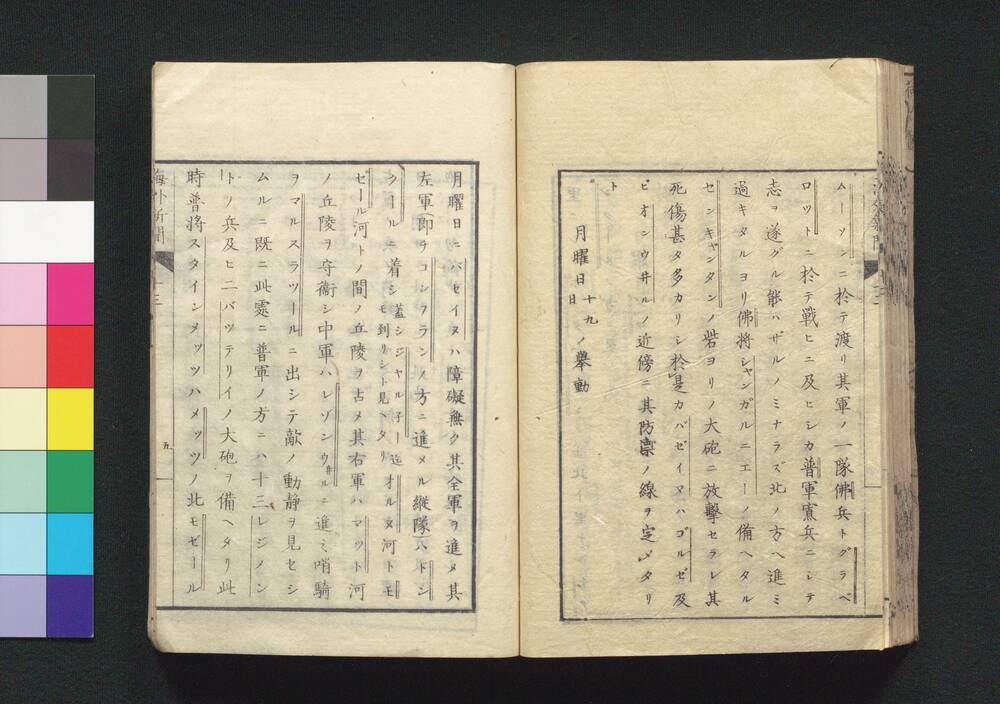 ムーソンニ於テ渡リ其軍ノ一隊佛兵トグラベ
ロツトニ於テ戰ヒニ及ヒシカ普軍寡兵ニシテ
志ヲ遂グル能ハザルノミナラズ北ノ方ヘ進ミ
過キタルヨリ佛將シャンガルニエーノ備ヘタル
センキャンタンノ砦ヨリノ大砲ニ放擊セラレ其
死傷甚タ多カリシ於是カバゼイヌハゴルゼ及
ビオンウ井ルノ近傍ニ其防禦ノ線ヲ定メタリ
ト
月曜日十九日ノ擧動
月曜日ニバセイヌハ障礙無ク其全軍ヲ進メ其
左軍(即ヲコンフランノ方ニ進メル縱隊)ハドン
クールニ着シ蓋シジャルニー迄モ到リシト見ヘタリオルヌ河トモ
ゼール河トノ間ノ丘陵ヲ占メ其右軍ハマツト河
ノ丘陵ヲ守衞シ中軍ハレゾンウ井ルニ進ミ哨騎
ヲマルスラツールニ出シテ敵ノ動靜ヲ見セシ
ムルニ既ニ此處ニ普軍ノ方ニハ十三レジメン
トノ兵及ヒ二バツテリイノ大砲ヲ備ヘタリ此
時普將スタインメツツハメツツノ北モゼール
海外新聞
五